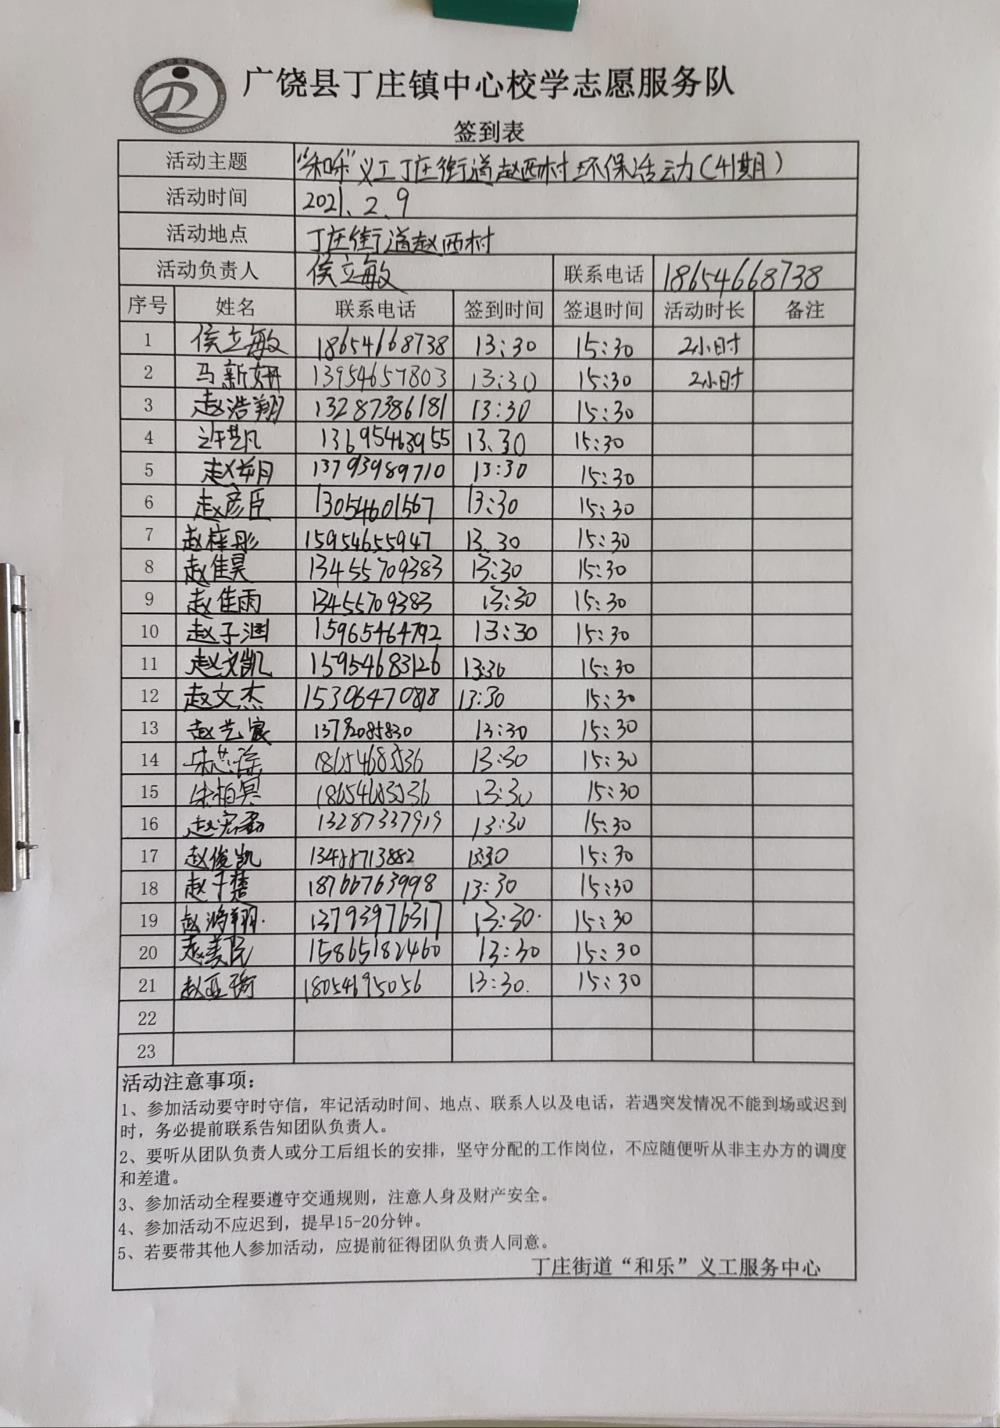 广饶县丁庄镇中心校学志愿服务队
签到表
活动主题 “和乐”义工丁庄街道赵西村环保活动(41期)
活动时间 2021.2.9
活动地点 丁庄街道赵西村
活动负责人 侯立敏 联系电话 18654668738
序号 姓名 联系电话 签到时间 签退时间 活动时长 备注
1 侯立敏 18654668738 13:30 15:30 2小时
2 马新妍 13954657803 13:30 15:30 2小时
3 赵浩翔 13287386181 13:30 15:30
4 许凯凡 13695463955 13.30 15:30
5 13793989710 13:30 15:30
6 赵彦臣 13054601567 13:30 15:30
7 赵梓彤 15954655947 13.30 15:30
8 赵佳昊 13455709383 13:30 15:30
9 赵佳雨 13455709383 13:30 15:30
10 赵子渊 15965464792 13:30 15:30
11 赵文凯 15954683126 13:30 15:30
12 赵文杰 15306470818 13:30 15:30
13 赵艺宸 13792085830 13:30 15:30
14 宋芯瑶 18654683536 13:30 15:30
15 宋柏冥 18654683536 13:30 15:30
16 13287337919 13:30 15:30
17 赵俊凯 13488713882 13:30 15:30
18 18766763998 13:30 15:30
19 赵鸿翔 13793976317 13:30 15:30
20 赵美辰 15865182460 13:30 15:30
21 赵亚琦 18054695056 13:30 15:30
22
23
活动注意事项:
1、参加活动要守时守信，牢记活动时间、地点、联系人以及电话，若遇突发情况不能到场或迟到
时，务必提前联系告知团队负责人。
2、要听从团队负责人或分工后组长的安排，坚守分配的工作岗位，不应随便听从非主办方的调度
和差遣。
3、参加活动全程要遵守交通规则，注意人身及财产安全。
4、参加活动不应迟到，提早15-20分钟。
5、若要带其他人参加活动，应提前征得团队负责人同意。
丁庄街道“和乐”义工服务中心